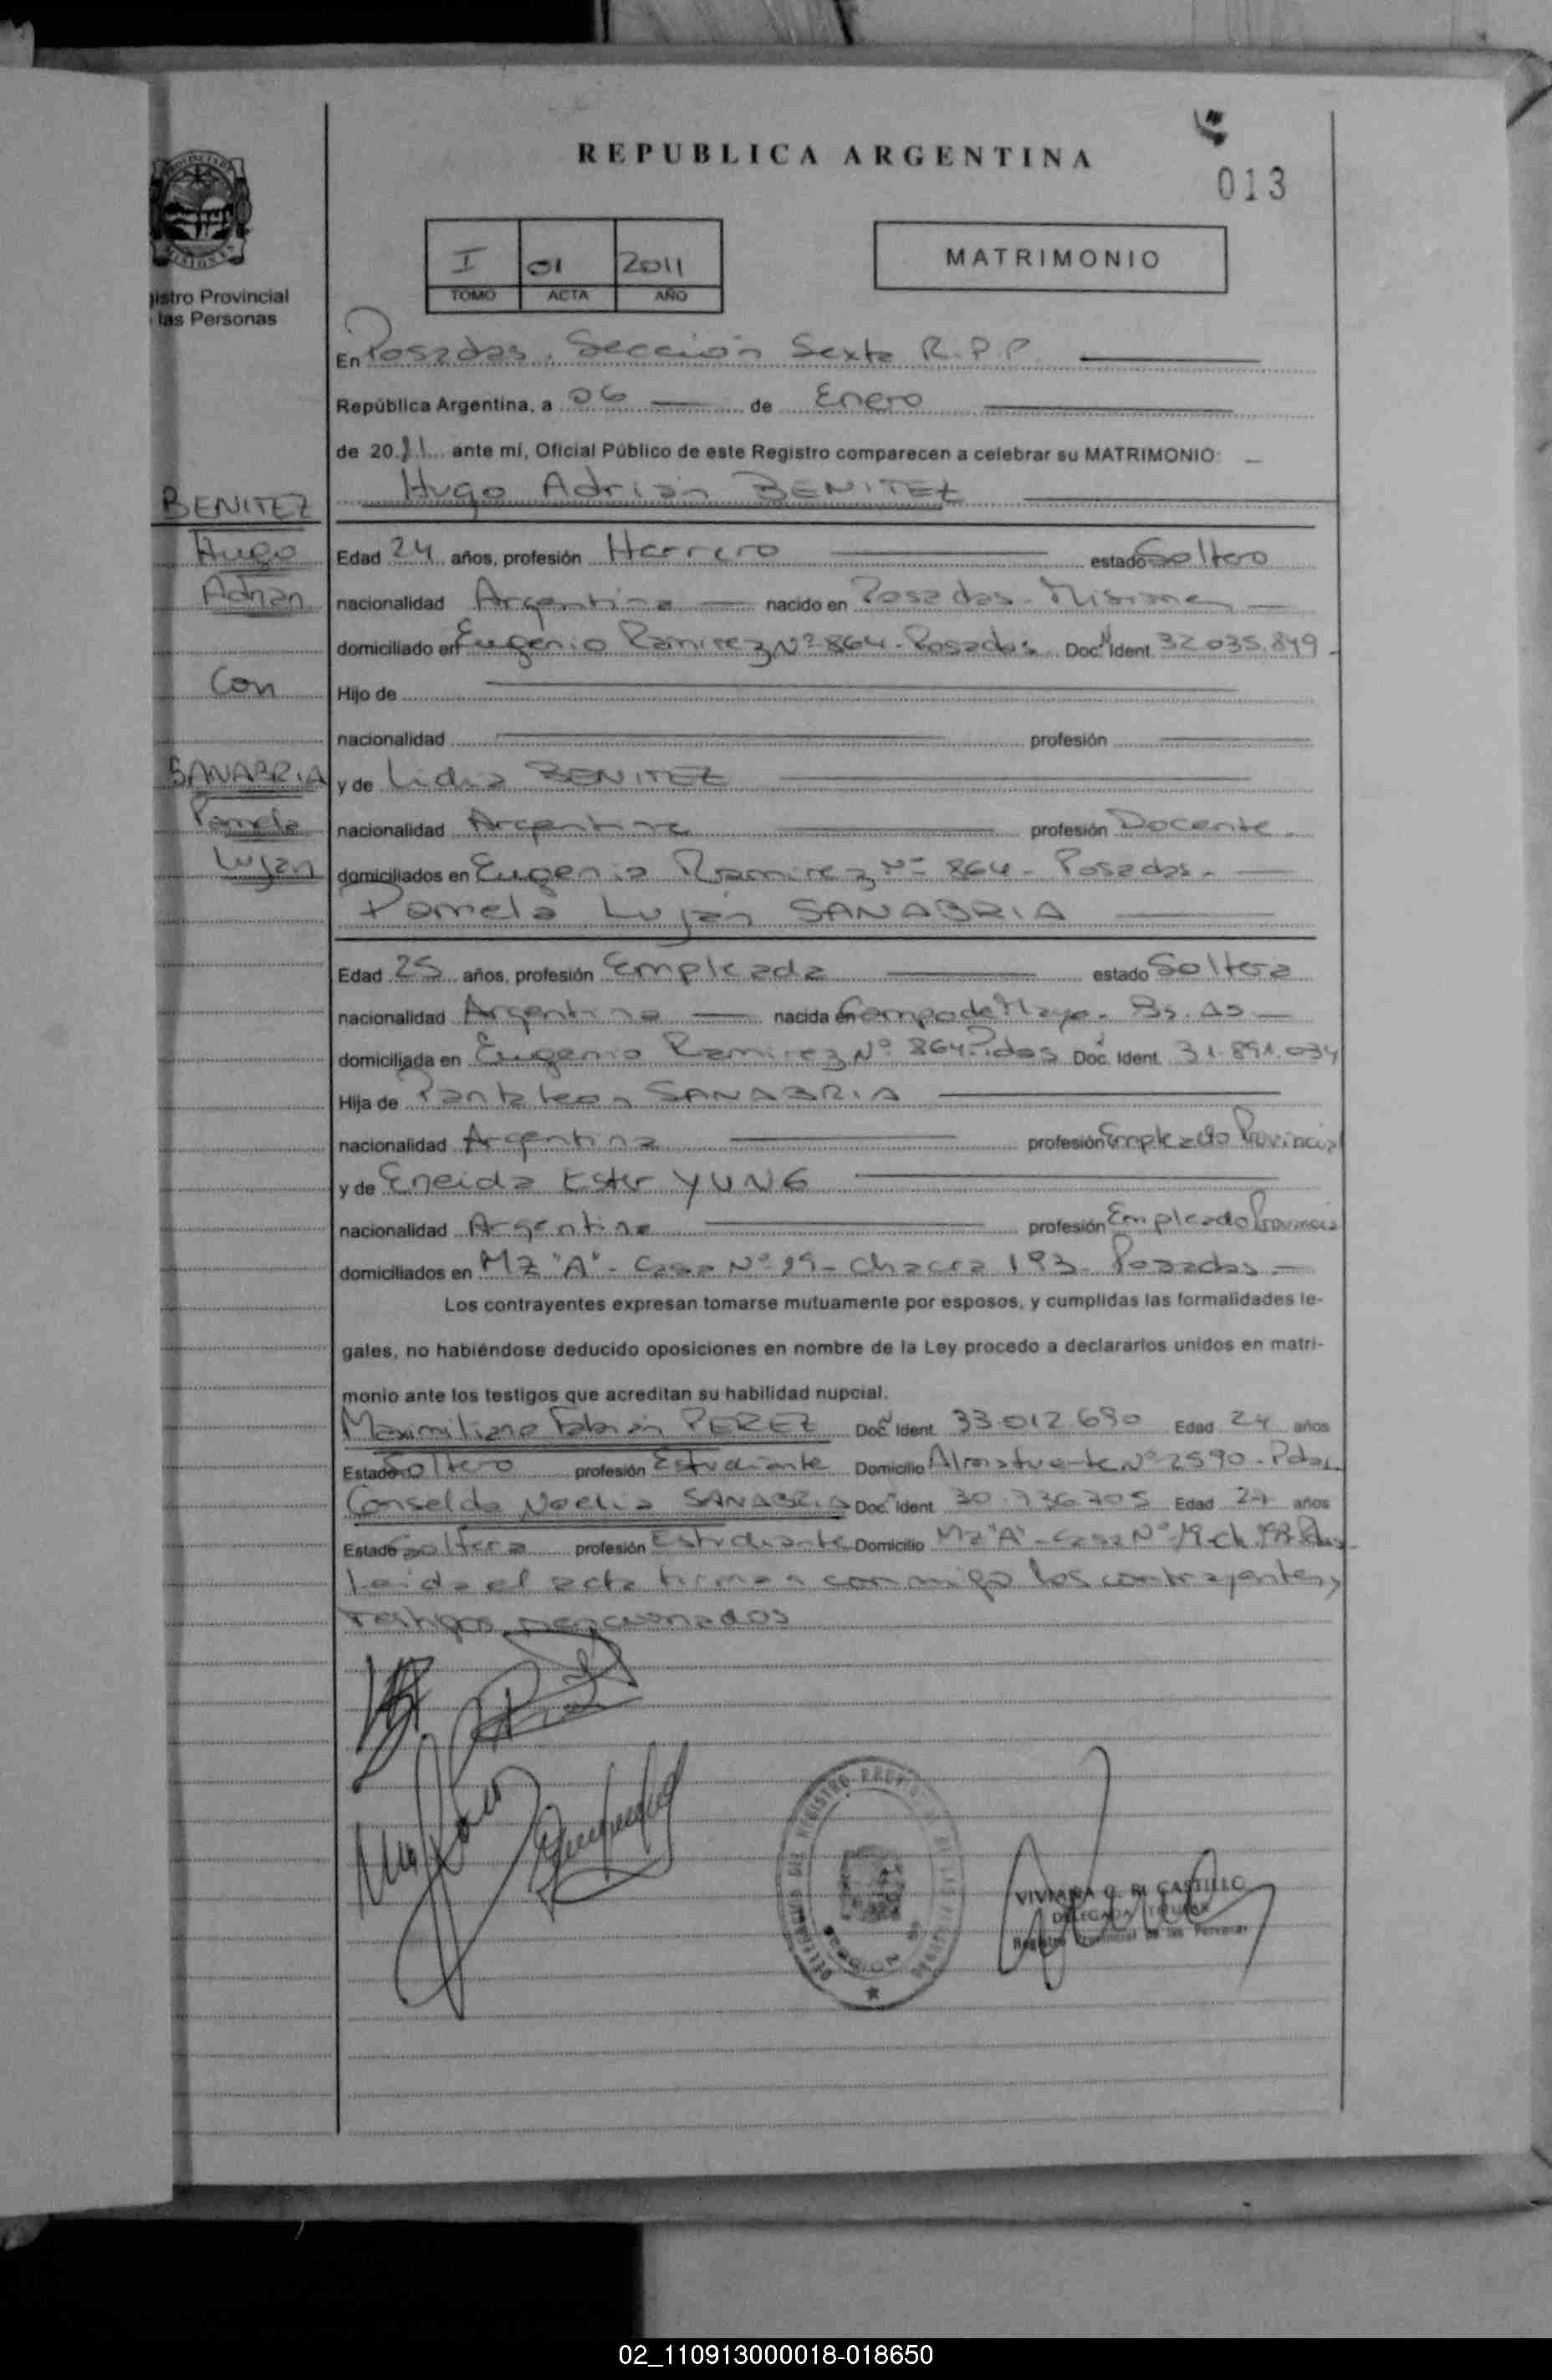 REPUBLICA ARGENTINA
013
I 01 2011
TOMO ACTA AÑO
MATRIMONIO
istro Provincial
las Personas
En Posadas. Sección Sexta R.P.P.
República Argentina, a 06 de Enero
de 2011 ante mí, Oficial Público de este Registro comparecen a celebrar su MATRIMONIO:
BENITEZ
Hugo Adrián BENITEZ
Hugo
Edad 24 años, profesión Herrero estado Soltero
Adrian
nacionalidad Argentina nacido en Posadas - Misiones
domiciliado en Eugenio Ramirez Nº 864 - Posadas Doc. Ident. 32.035.849
Con
Hijo de
nacionalidad profesión
SANABRIA
y de Lidia BENITEZ
Pamela
nacionalidad Argentina profesión Docente
Lujan
domiciliados en Eugenio Ramirez Nº 864 - Posadas.
Pamela Luján SANABRIA
Edad 25 años, profesión Empleada estado Soltera
nacionalidad Argentina nacida en Campo de Mayo - Bs. As
domiciliada en Eugenio Ramirez Nº 864 Pdas Doc. Ident. 31.891.034
Hija de Pantaleon SANABRIA
nacionalidad Argentina profesión Empleado Provincial
y de Eneida Ester YUNG
nacionalidad Argentina profesión Empleado Provincial
domiciliados en MZ "A" - Casa Nº 19 - Chacra 193 - Posadas
Los contrayentes expresan tomarse mutuamente por esposos, y cumplidas las formalidades le-
gales, no habiéndose deducido oposiciones en nombre de la Ley procedo a declararlos unidos en matri-
monio ante los testigos que acreditan su habilidad nupcial.
Maximiliano Fabián PEREZ Doc. Ident. 33.012.690 Edad 24 años
Estado Soltero profesión Estudiante Domicilio Almafuerte Nº 2590 - Pdas.
Conselda Noelia SANABRIA Doc. Ident. 30.736.705 Edad 27 años
Estado Soltera profesión Estudiante Domicilio Mz "A" - Casa Nº 19 - ch 193 Pdas
Leida el acta firman conmigo los contrayentes y
testigos mencionados
VIVIANA DI CASTILLO
DELEGADA TITULAR
Registro Provincial de las Personas
02_110913000018-018650